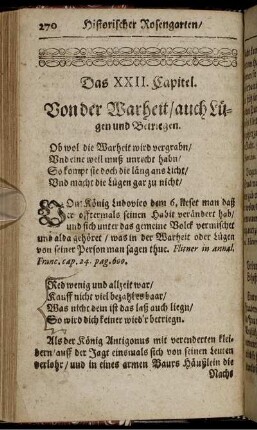 270 Historischer Rosengarten/
Das XXII. Capitel.
Von der Warheit/auch Lü-
gen und Betriegen.
Ob wol die Warheit wird vergrabn/
Vnd eine weil muß unrecht habn/
So kompt sie doch die läng ans Licht/
Vnd macht die Lügen gar zu nicht/
VOm König Ludovico dem 6. lieset man daß
er offtermals seinen Habit verändert hab/
und sich unter das gemeine Volck vermischet
und alda gehöret / was in der Warheit oder Lügen
von seiner Person man sagen thue. in annal.
Franc. cap. 24. pag. 600.
Red wenig und allzeit war/
Kauff nicht viel bezahls baar/
Was nicht dein ist das laß auch liegn/
So wird dich keiner wied'r betriegn.
Als der König Antigonus mit veränderten klei-
dern/auff der Jagt einsmals sich von seinen Leuten
verlohr/ und in eines armen Baurs Häußlein die
Nacht